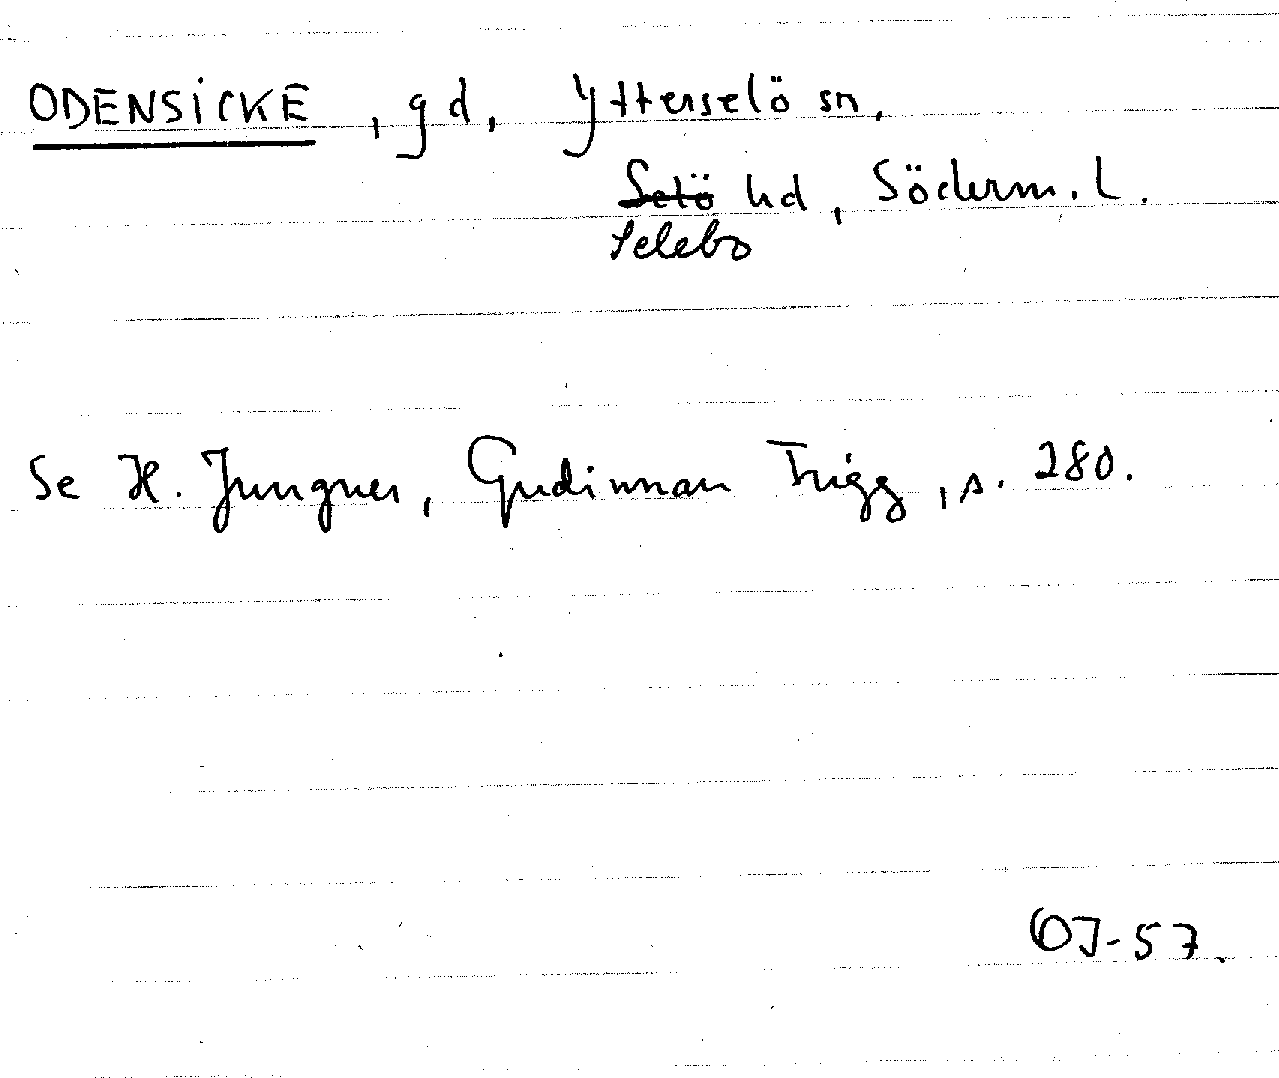 ODENSICKE, gd, Ytterselö sn,
Selö hd, Söderm. L.
Selebo
Se H. Jungner, Gudinnan Frigg, s. 280.
OJ-57.